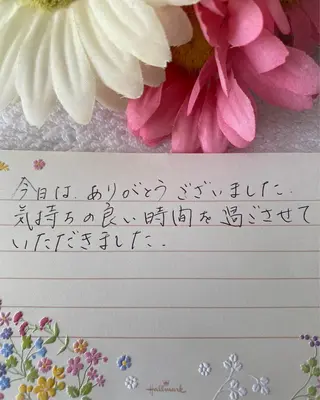 今日は、ありがとうございました.
気持ちの良い時間を過ごさせて
いただきました.
Hallmark